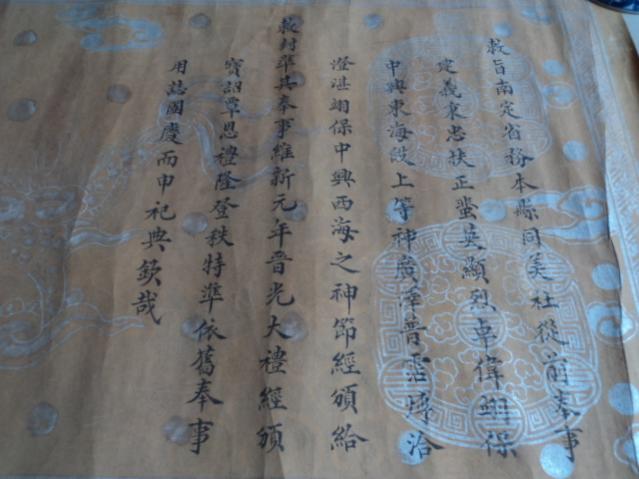 敕旨南定省務本縣同美社從前奉事
定義秉忠扶正蜚英顯烈卓偉翊保
中興東海段上等神廣澤普霑溥洽
澄湛翊保中興西海之神節經頒給
敕封準其奉事維新元年晉光大禮經頒
寶詔覃恩禮隆登秩特準依舊奉事
用誌國慶而申祀典欽哉